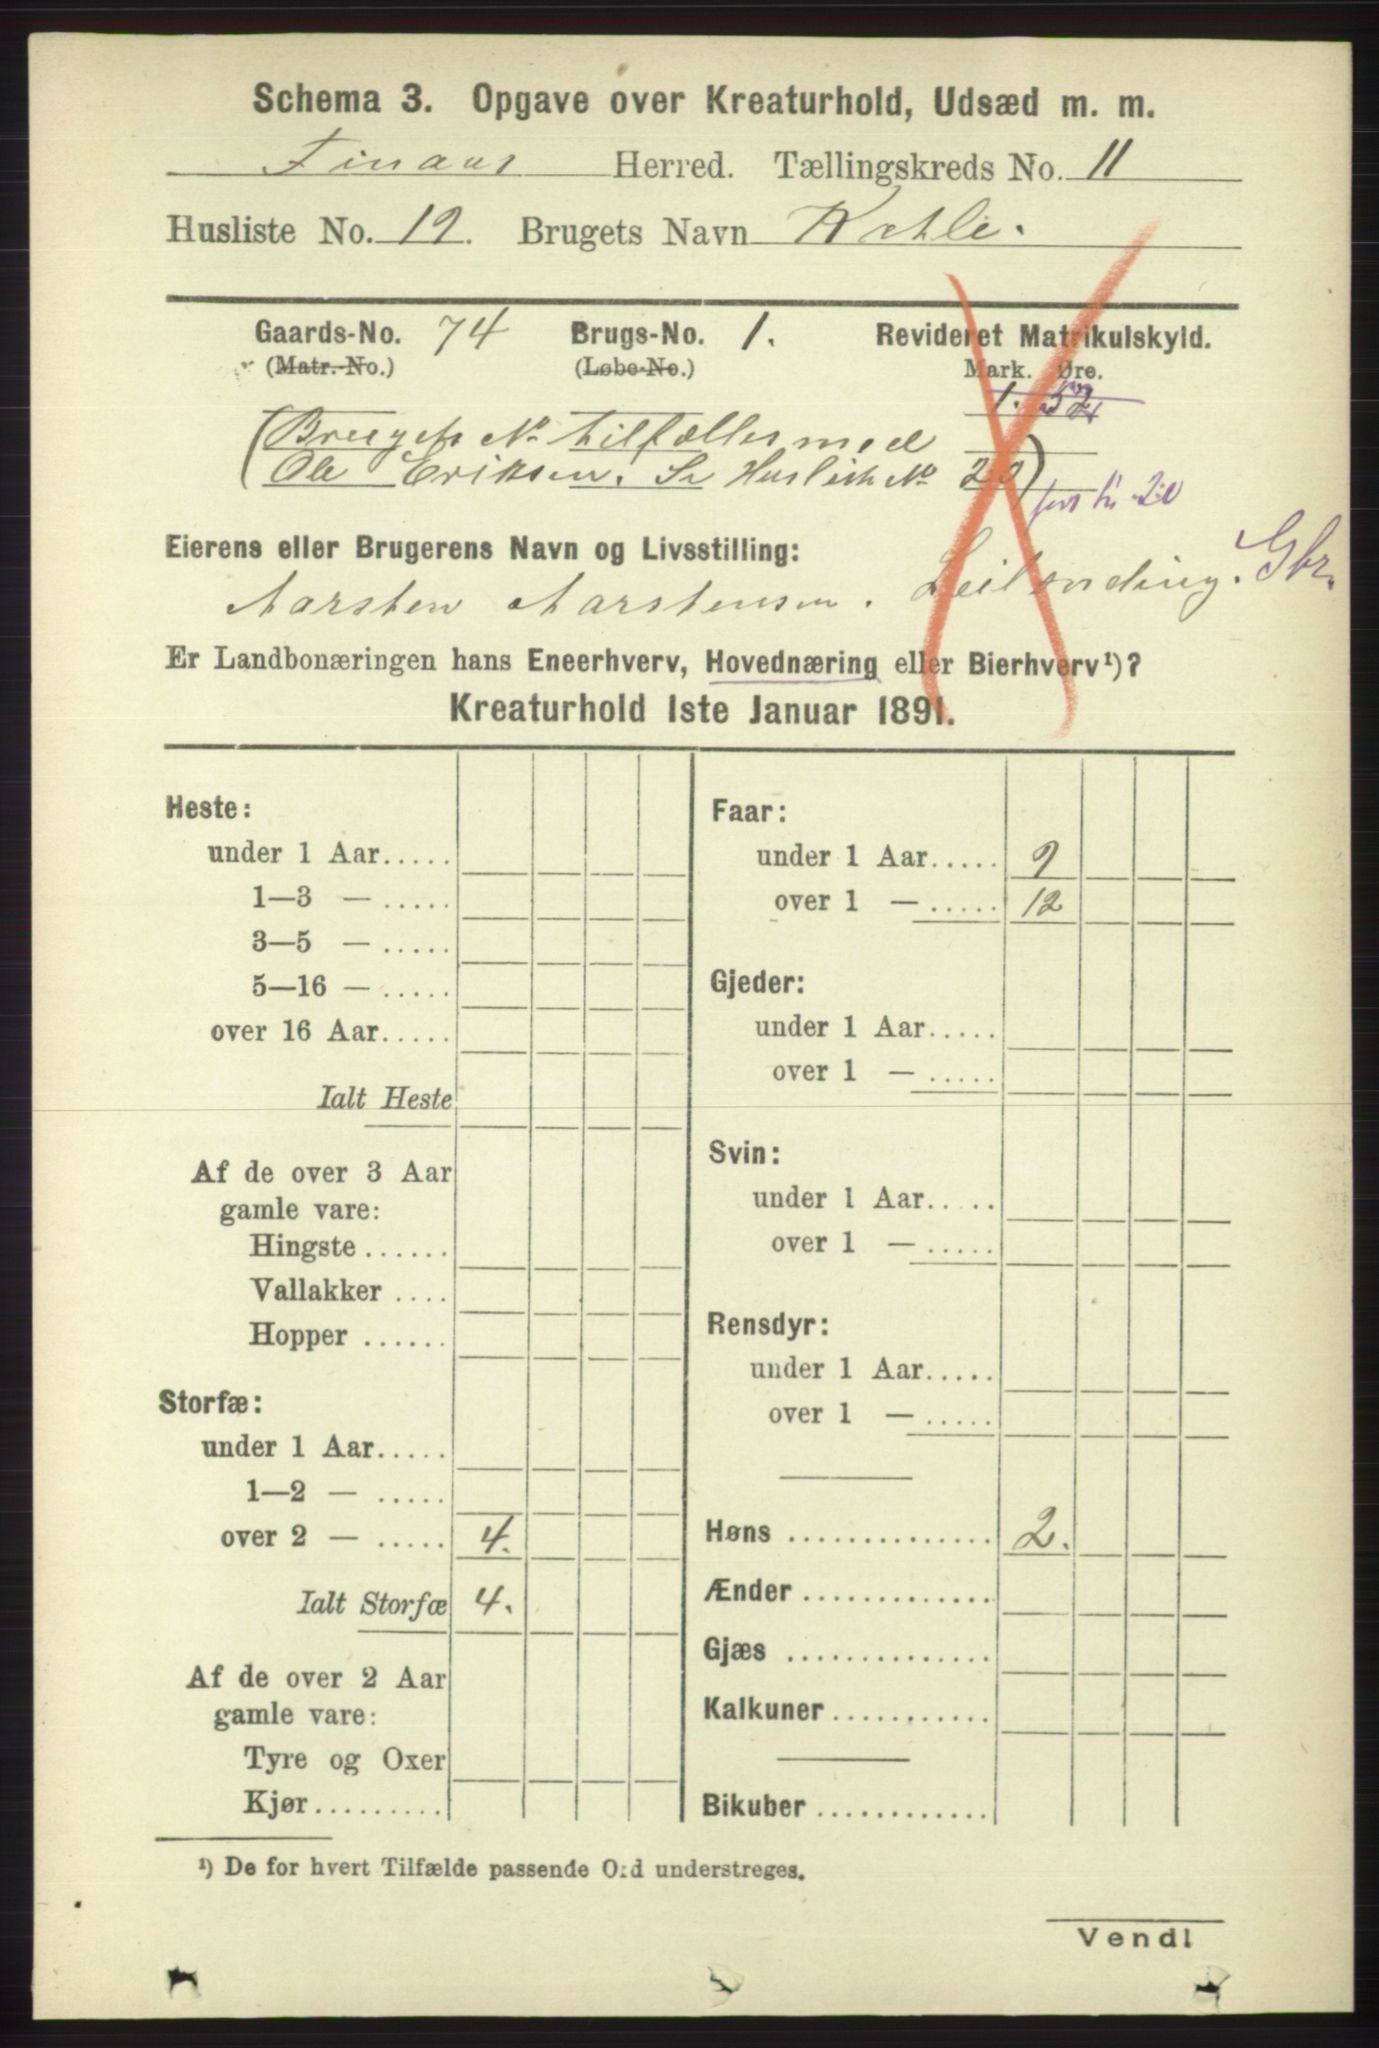 Schema 3. Opgave over Kreaturhold, Udsæd m. m.
Finaas Herred. Tællingskreds No. 11
Husliste No. 19. Brugets Navn Kahle.
Gaards-No. 74 Brugs-No. 1. Revideret Matrikulskyld.
(Matr.-No.) (Løbe-No.) Mark. Øre.
1. 52
(Brugets No tilfælles med
Ole Eriksen. Se Husliste No 20)
før til 20
Eierens eller Brugerens Navn og Livsstilling:
Aarsten Aarstensen. Leilending. Gbr.
Er Landbonæringen hans Eneerhverv, Hovednæring eller Bierhverv¹)?
Kreaturhold 1ste Januar 1891.
Heste:
under 1 Aar.....
1—3 — .....
3—5 — .....
5—16 — .....
over 16 Aar.....
Ialt Heste
Af de over 3 Aar
gamle vare:
Hingste ......
Vallakker ....
Hopper ......
Storfæ:
under 1 Aar.....
1—2 — .....
over 2 — ..... 4.
Ialt Storfæ 4.
Af de over 2 Aar
gamle vare:
Tyre og Oxer
Kjør.........
Faar:
under 1 Aar..... 9
over 1 — ..... 12
Gjeder:
under 1 Aar.....
over 1 — .....
Svin:
under 1 Aar.....
over 1 — .....
Rensdyr:
under 1 Aar.....
over 1 — .....
Høns .............. 2.
Ænder .............
Gjæs ..............
Kalkuner ...........
Bikuber ............
¹) De for hvert Tilfælde passende Ord understreges.
Vend!